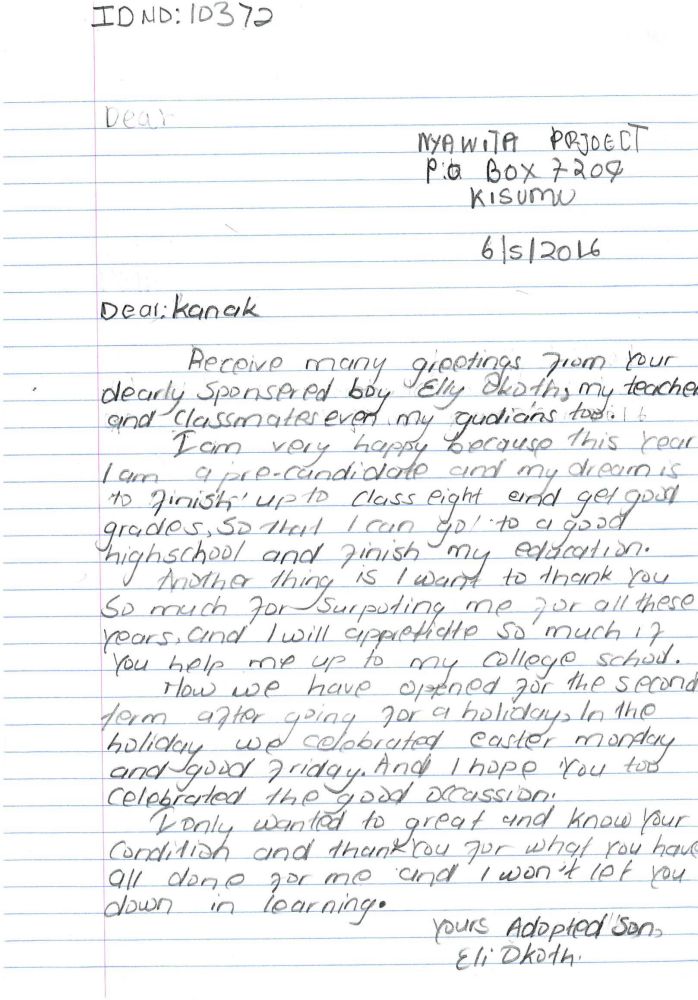 ID NO: 10372
Dear
NYAWITA PRJOECT
P.O BOX 7209
KISUMU
6/5/2016
Dear: Kanak
Receive many greetings from Your
dearly Sponsered boy Elly Okoth, my teacher
and Classmates even my gudians too.
I am very happy because this Year
I am a pre-candidate and my dream is
to finish up to Class eight and get good
grades, So that I can go to a good
highschool and finish my education.
Another thing is I want to thank You
So much for Surpoting me for all these
years, and I will appretiate so much if
You help me up to my College school.
Now we have opened for the second
term after going for a holiday, In the
holiday we celebrated easter monday
and good friday. And I hope You too
Celebrated the good occassion.
I only wanted to great and know Your
Condition and thank You for what You have
all done for me and I won't let you
down in learning.
Yours Adopted Son,
Eli Okoth.